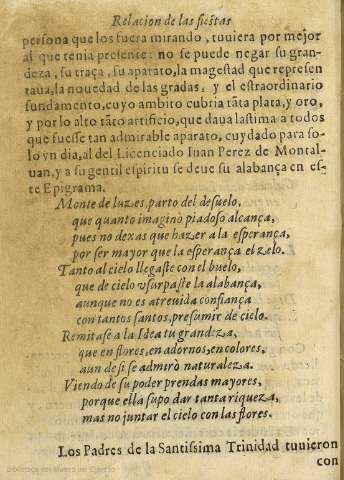 Relacion de las fiestas
persona que los fuera mirando, tuuiera por mejor
al que tenia presente: no se puede negar su gran-
deza, su traça, su aparato, la magestad que represen
taua, la nouedad de las gradas, y el estraordinario
fundamento, cuyo ambito cubria tãta plata, y oro,
y por lo alto tãto artificio, que daua lastima a todos
que fuesse tan admirable aparato, cuydado para so-
lo vn dia, al del Licenciado Iuan Perez de Montal-
uan, y a su gentil espiritu se deue su alabança en es-
te Epigrama.
Monte de luzes, parto del desuelo,
que quanto imaginò piadoso alcança,
pues no dexas que hazer a la esperança,
por ser mayor que la esperança el zelo.
Tanto al cielo llegaste con el buelo,
que de cielo vsurpaste la alabança,
aunque no es atreuida confiança
con tantos santos, presumir de cielo.
Remitase a la Idea tu grandeza,
que en flores, en adornos, en colores,
aun de si se admirò naturaleza.
Viendo de su poder prendas mayores,
porque ella supo dar tanta riqueza,
mas no juntar el cielo con las flores.
Los Padres de la Santissima Trinidad tuuieron
con
Biblioteca del Museo del Ejército